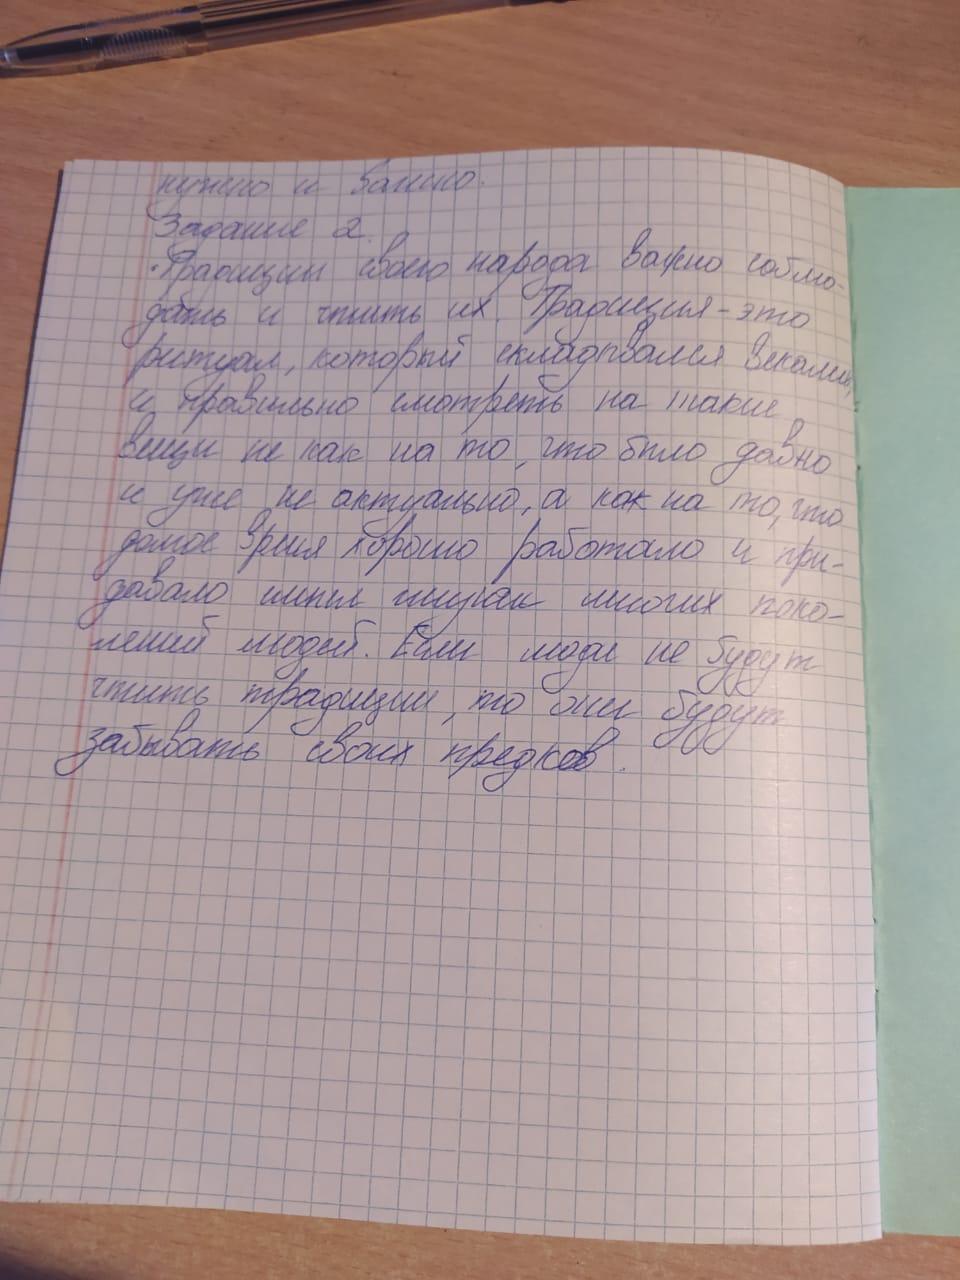 нужно и важно.
Задание 2.
Традиции своего народа важно соблю-
дать и чтить их. Традиция - это
ритуал, который складывался веками,
и правильно смотреть на такие
вещи не как на то, что было давно
и уже не актуально, а как на то, что
долгое время хорошо работало и при-
давало смысл жизням многих поко-
лений людей. Если люди не будут
чтить традиции, то они будут
забывать своих предков.